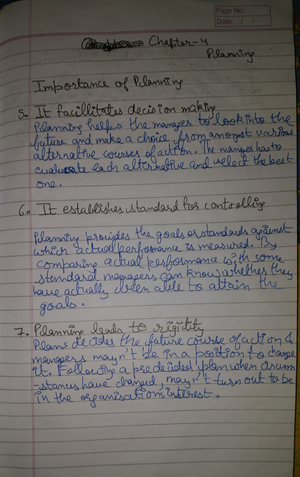 Page No:
Date: / /
Chapter-4
Planning
Importance of Planning
5. It facillitates decision making
Planning helps the manager to look into the
future and make a choice from amongst various
alternative courses of action. The manager has to
evaluate each alternative and select the best
one.
6. It establishes standard for controlling
Planning provides the goals or standards against
which actual performance is measured. By
comparing actual performance with some
standard managers can know whether they
have actually been able to attain the
goals.
7. Planning leads to rigitity
Plans decides the future course of action &
managers mayn't be in a position to change
it. Following a predecided plan when circum
-stances have changed, mayn't turn out to be
in the organisations interest.